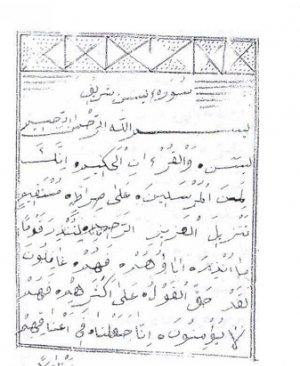 سورة يٰسٓ شريف
بسم الله الرحمن الرحيم
يٰسٓ ه والقرءان الحكيم ه انك
لمن المرسلين ه على صراط مستقيم
تنزيل العزيز الرحيم لتنذر قوما
ما انذر ءاباؤهم فهم غافلون
لقد حق القول على اكثرهم فهم
لا يؤمنون ه انا جعلنا في اعناقهم